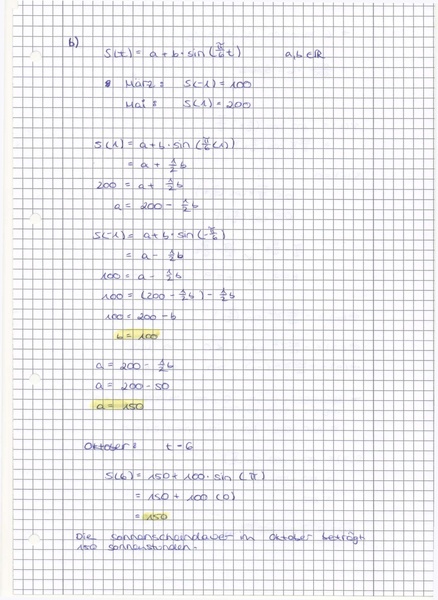 b)
S(t) = a + b · sin (π/6 t)    a, b ∈ ℝ
März: S(-1) = 100
Mai: S(1) = 200
S(1) = a + b · sin (π/6 (1))
= a + 1/2 b
200 = a + 1/2 b
a = 200 - 1/2 b
S(-1) = a + b · sin (-π/6)
= a - 1/2 b
100 = a - 1/2 b
100 = (200 - 1/2 b) - 1/2 b
100 = 200 - b
b = 100
a = 200 - 1/2 b
a = 200 - 50
a = 150
Oktober: t = 6
S(6) = 150 + 100 · sin (π)
= 150 + 100 (0)
= 150
Die Sonnenscheindauer im Oktober beträgt
150 Sonnenstunden.